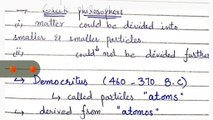 → Greek philosophers
i) matter could be divided into
smaller & smaller particles
ii) could not be divided further
→ Democritus (460-370 B.C)
↳ called particles "atoms"
↳ derived from "atomos"